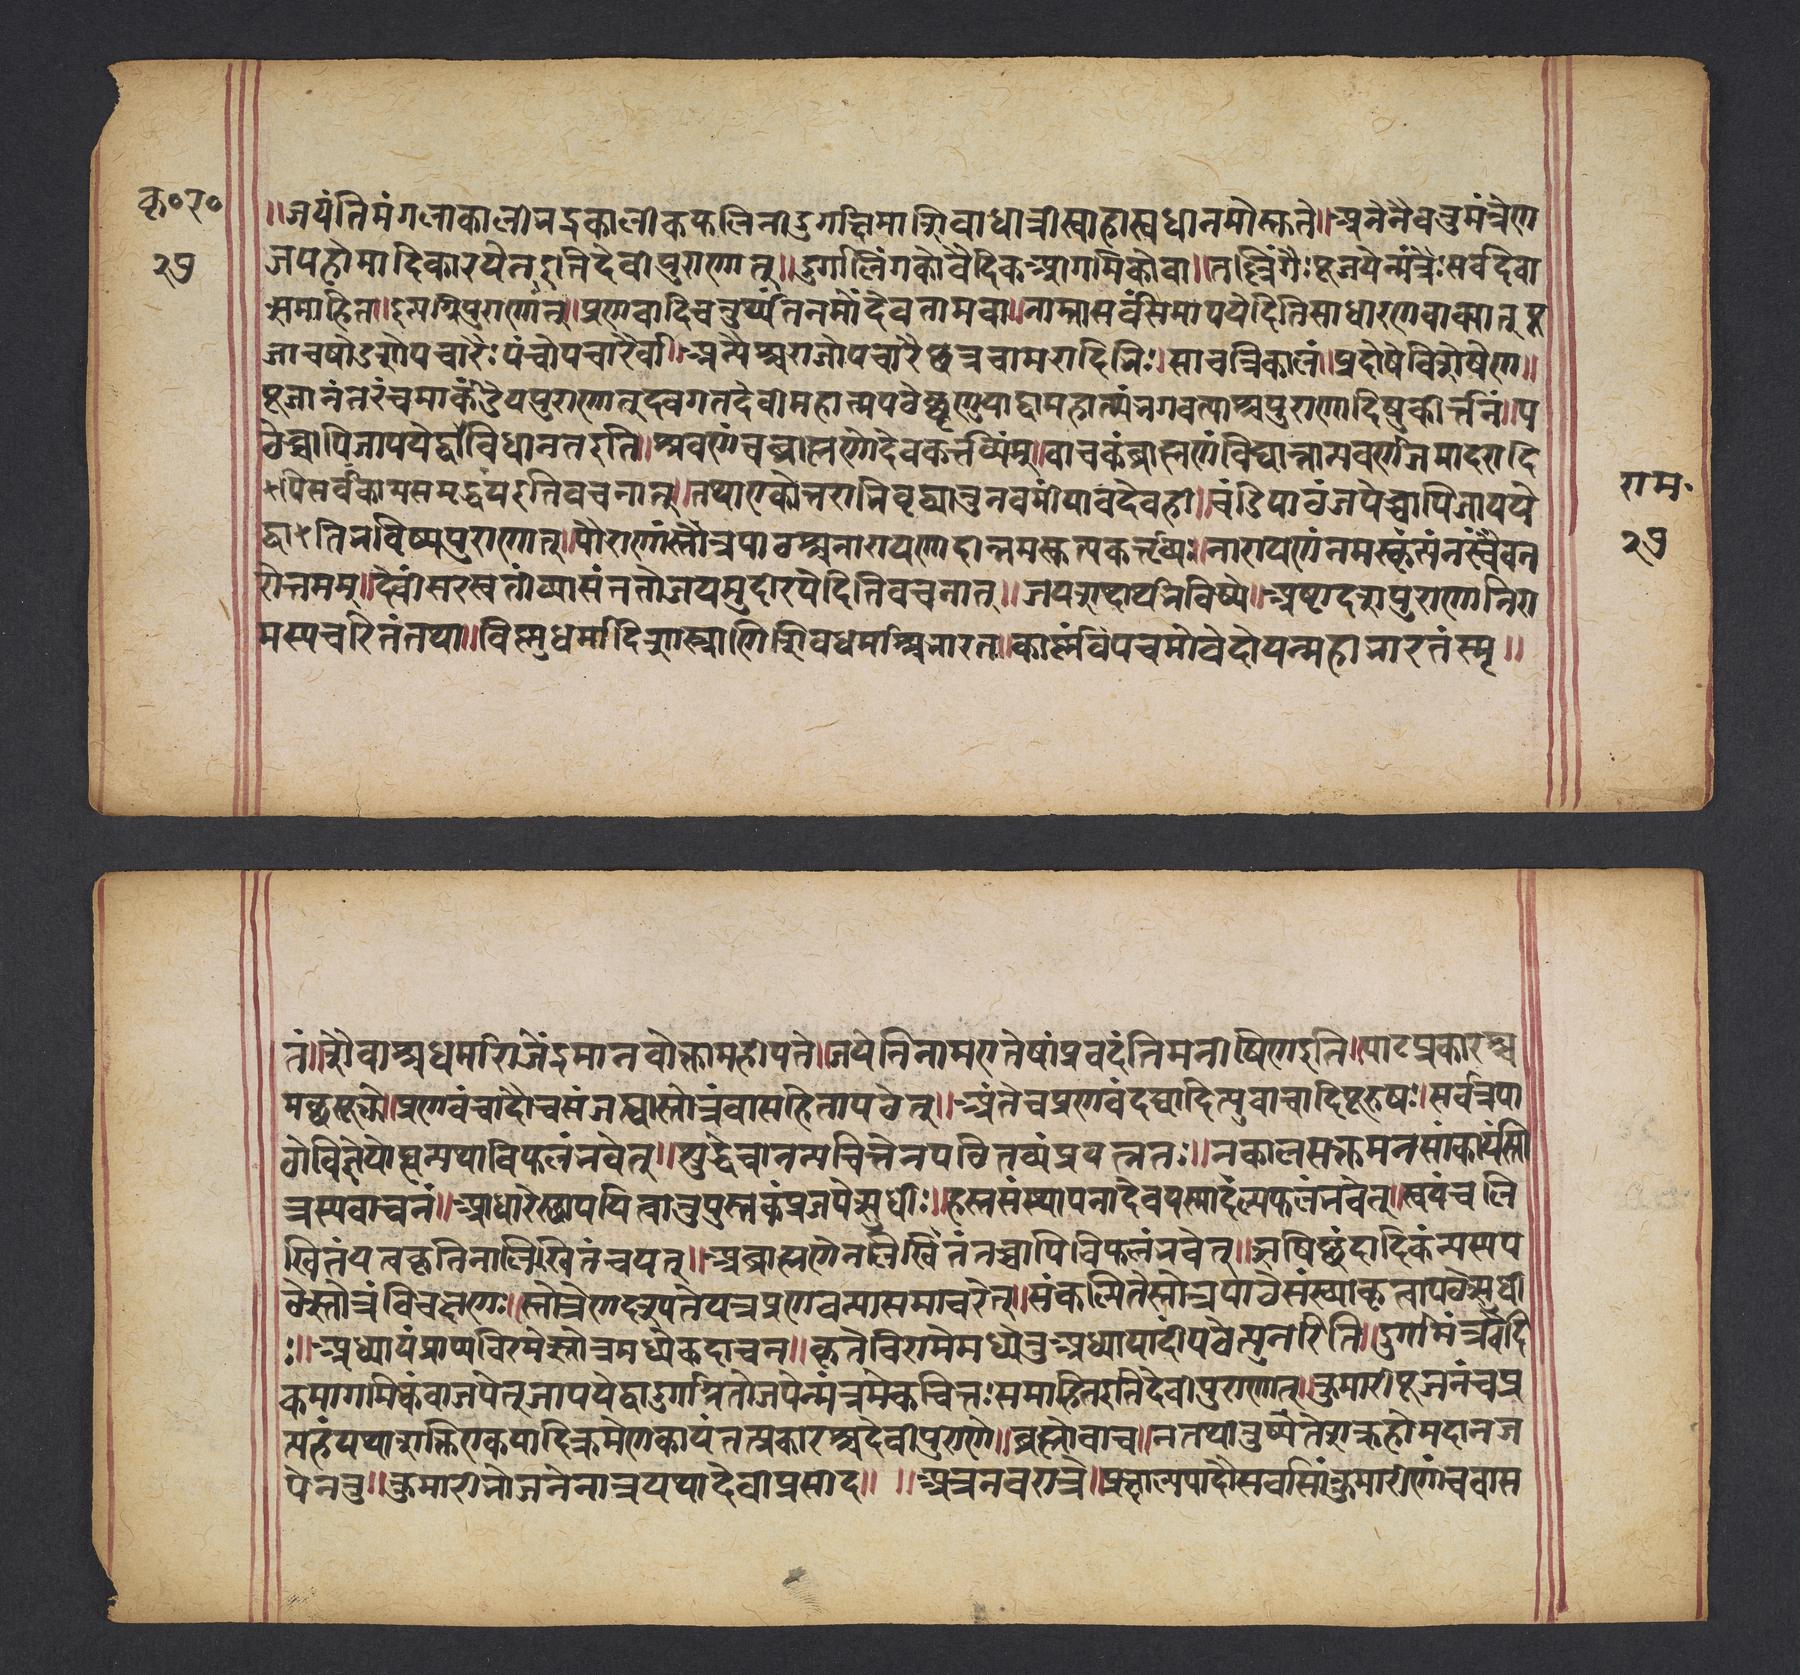 कृ०र०
२७
॥जयंतिमंगलाकालीभद्रकालीकफलिनीदुर्गाक्षिमाशिवाधात्रीस्वाहास्वधानमोस्तुते॥अनेनैवतुमंत्रेण
जपहोमादिकारयेतइतिदेवीपुराणात्॥दुर्गालिंगकोवैदिकआगमिकोवा॥तल्लिंगैःपूजयेन्मंत्रैःसर्वदेवा
न्समाहितः॥इत्यग्निपुराणात्॥प्रणवादिचतुर्थ्यंतनमोंदेवतामवा॥नाम्नासर्वंसमापयेदितिसाधारणवाक्यात्पू
जाचषोडशोपचारैःपंचोपचारैर्वा॥अन्यैश्चराजोपचारैछत्रचामरादिभिः॥साचत्रिकालं॥प्रदोषेविशेषेण॥
पूजानंतरंचमार्कंडेयपुराणात्द्वगतदेवीमहात्मपठेछृणुयाद्वामहात्म्यंभगवत्याश्चपुराणादिषुकीर्त्तनं॥प
ठेच्चापिजापयेद्वाविधानतइति॥श्रवणंचब्राह्मणेदेवकर्त्तव्यंम्॥वाचकंब्राह्मणंविद्यान्नान्यवर्णजमादरादि
तिपिसर्वकामसमृद्धंयइतिवचनात्॥तथाएकोत्तराभिवृद्ध्यातुनवमींयावदेवही॥चंडिपाठंजपेच्चापिजापये
द्वाइतिभविष्यपुराणात्॥पौराणंस्तोत्रपाठश्चनारायणदान्नमस्कृत्यकर्त्तव्यः॥नारायणंनमस्कृत्यंनरंचैवन
रोत्तमम्॥देवींसरस्वतींव्यासंततोजयमुदीरयेदितिवचनात्॥जयशब्दार्थभविष्ये॥अष्टादशपुराणानिरा
मस्यचरितंतथा॥विष्णुधर्मादिशास्त्राणिशिवधर्माश्चभारत॥कार्ल्लंवेपंचमोवेदोयन्महाभारतंस्मृ॥
राम.
२७
तं॥शैवाश्चधर्माराजेंद्रमानवोक्तामहीपते॥जयेतिनामएतेषांप्रवदंतिमनीषिणइति॥पाटप्रकारश्च
मत्छसूक्ते॥प्रणवंचादौचसंजप्त्वास्तोत्रंवासहितापठेत्॥अंतेचप्रणवंदद्यादित्युवाचादिपूरुषः॥सर्वत्रपा
ठोविज्ञेयोह्यन्यथाविफलंभवेत्॥शुद्धेचानन्यचित्तेनपठितव्यंप्रयत्नतः॥नकालसक्तमनसांकार्यंस्तो
त्रस्यवाचनं॥आधारेस्थापयित्वातुपुस्तकंप्रजपेत्सुधीः॥हस्तसंस्थापनादेवयस्मादल्पफलंभवेत्॥स्वयंचलि
खितंयत्वकृतिनालिखितंचयत्॥अब्राह्मणेनलिखितंतच्चापिविफलंभवेत्॥ऋषिछंदादिकंन्यस्यप
ठेत्स्तोत्रंविचक्षणः॥स्तोत्रेणदृश्यतेयत्रप्रणवन्यासमाचरेत्॥संकल्पितेस्तोत्रपाठेसंख्याकृत्वापठेत्सुधी
ः॥अध्यायंप्राप्यविरमेन्नतोत्रमध्येकदाचन॥कृतेविरामेमध्येतुअध्यायादींपठेत्पुनरिति॥दुर्गामंत्रंवैदि
कमागमिकंवाजपेत्जापयेद्वादुर्गाग्रितोजपेन्मंत्रमेकचित्तःसमाहितइतिदेवीपुराणात्॥कुमारीपूजनंचप्र
त्यहंयथाशक्तिएकयादिक्रमेणकार्यंतत्प्रकारश्चदेवीपुराणे॥ब्रह्मोवाच॥नतथातुष्यतेशक्रहोमदानज
पेनतु॥कुमारीभोजनेनात्रयथादेवीप्रसीद॥ ॥अत्रनवरात्रे॥प्रक्षाल्यपादौसर्वासांकुमारीणांचवास